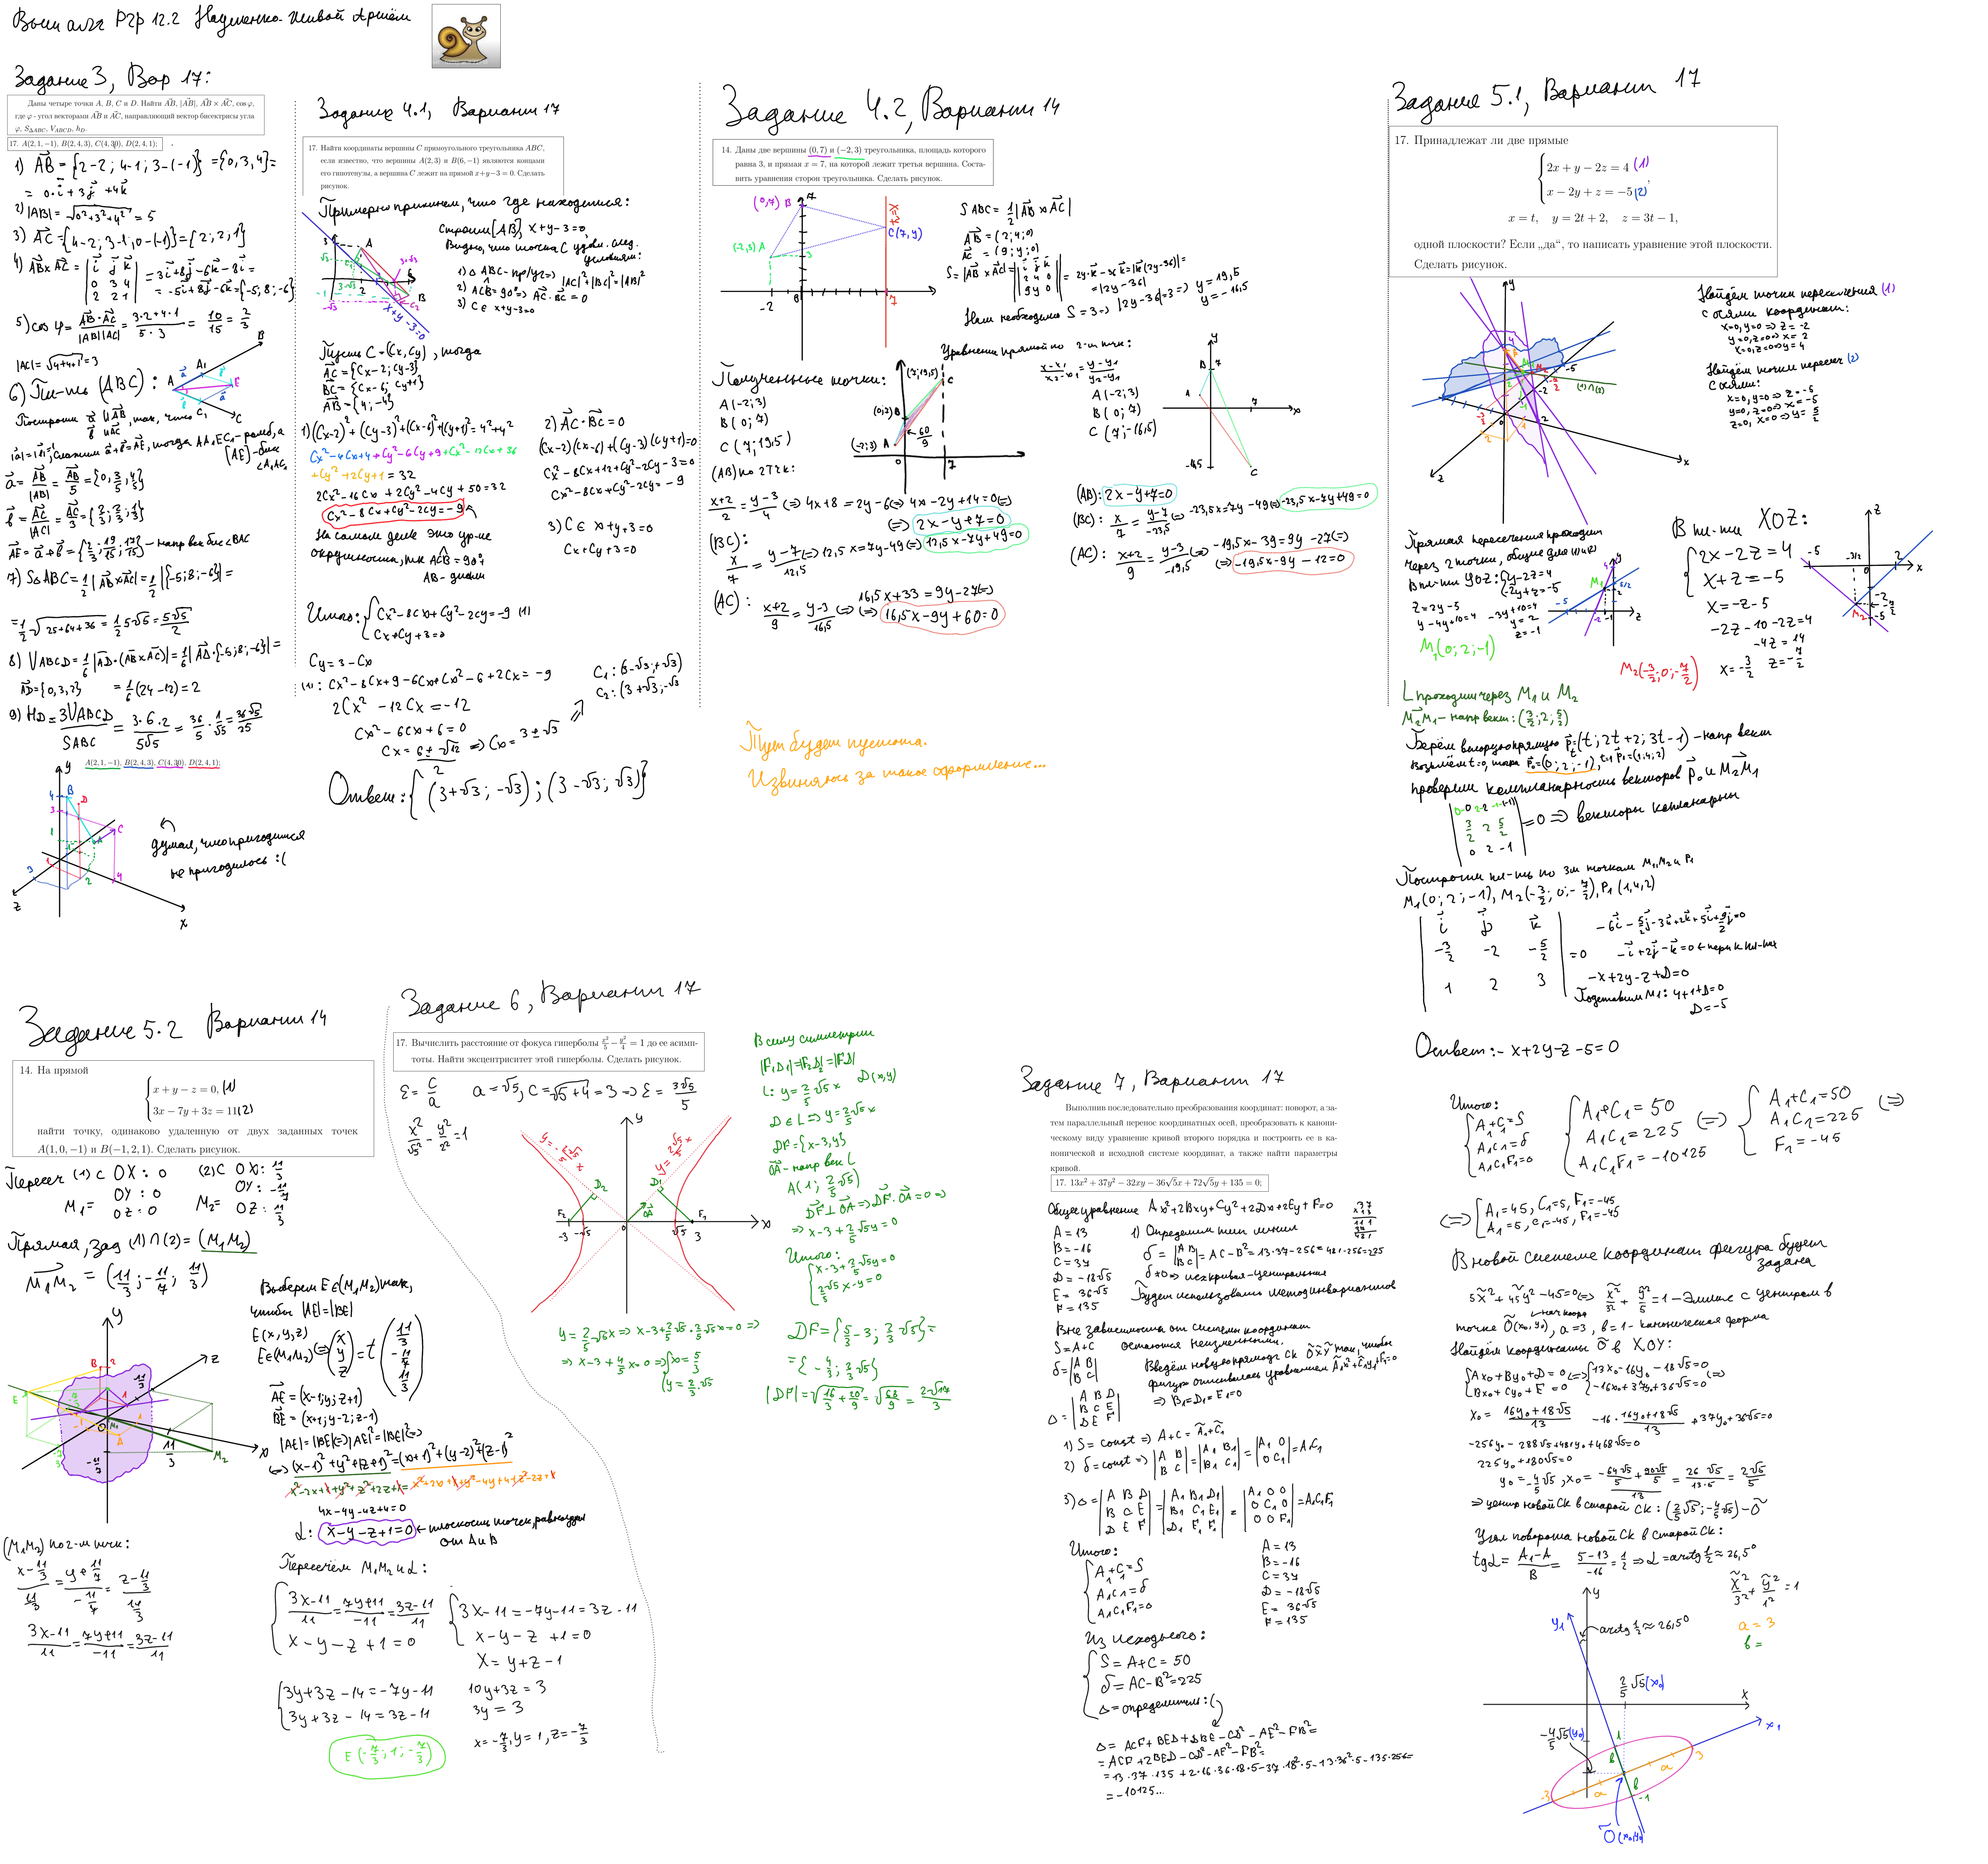 Вышалг РГР 12.2 Науменко-Живой Артём
Задание 3, Вар 17:
Даны четыре точки A, B, C и D. Найти AB, |AB|, AB × AC, cos φ,
где φ - угол векторами AB и AC, направляющий вектор бисектрисы угла
φ, S_ΔABC, V_ABCD, h_D.
17. A(2,1,−1), B(2,4,3), C(4,3,0), D(2,4,1);
1) AB = {2−2; 4−1; 3−(−1)} = {0,3,4} =
= 0·i + 3j + 4k
2) |AB| = √(0²+3²+4²) = 5
3) AC = {4−2; 3−1; 0−(−1)} = {2; 2; 1}
4) AB×AC = |i j k; 0 3 4; 2 2 1| = 3i+8j−6k−8i =
= −5i+8j−6k = {−5; 8; −6}
5) cos φ = AB·AC / |AB||AC| = (3·2+4·1)/(5·3) = 10/15 = 2/3
|AC| = √(4+4+1) = 3
6) Пл-ть (ABC):
[AE) - бис
a = AB/|AB| = AB/5 = {0; 3/5; 4/5}
b = AC/|AC| = AC/3 = {2/3; 2/3; 1/3}
AE = a + b = {2/3; 19/15; 17/15} – напр век бис ∠BAC
7) SΔABC = 1/2 |AB×AC| = 1/2 |{−5; 8; −6}| =
= 1/2 √(25+64+36) = 1/2 5√5 = 5√5/2
8) VABCD = 1/6 |AD·(AB×AC)| = 1/6 |AD·{−5; 8; −6}| =
AD = {0,3,2} = 1/6 (24−12) = 2
9) HD = 3VABCD / SABC = 3·6·2 / 5√5 = 36/5 · 1/√5 = 36√5/25
A(2,1,−1), B(2,4,3), C(4,3,0), D(2,4,1);
думал, что пригодится
не пригодилось :(
Задание 4.1, Вариант 17
17. Найти координаты вершины C прямоугольного треугольника ABC,
если известно, что вершины A(2,3) и B(6,−1) являются концами
его гипотенузы, а вершина C лежит на прямой x+y−3 = 0. Сделать
рисунок.
Примерно прикинем, что где находится:
Строим [AB], x+y−3=0,
Видно, что точка C удовл. след.
условиям:
1) Δ ABC – пр/уг => |AC|²+|BC|²=|AB|²
2) ACB = 90° => AC·BC = 0
3) C ∈ x+y−3=0
Пусть C = (Cx, Cy), тогда
AC = {Cx−2; Cy−3}
BC = {Cx−6; Cy+1}
AB = {4; −4}
1) (Cx−2)²+(Cy−3)²+(Cx−6)²+(Cy+1)² = 4²+4²
Cx²−4Cx+4+Cy²−6Cy+9+Cx²−12Cx+36
+Cy²+2Cy+1 = 32
2Cx²−16Cx+2Cy²−4Cy+50=32
Cx²−8Cx+Cy²−2Cy=−9
На самом деле это ур-ие
окружности, т.к ACB = 90°
AB – диам
2) AC·BC = 0
(Cx−2)(Cx−6)+(Cy−3)(Cy+1)=0
Cx²−8Cx+12+Cy²−2Cy−3=0
Cx²−8Cx+Cy²−2Cy=−9
3) C ∈ x+y+3=0
Cx+Cy+3=0
Итого: { Cx²−8Cx+Cy²−2Cy=−9 (1)
Cx+Cy+3=0
Cy = 3−Cx
(1): Cx²−8Cx+9−6Cx+Cx²−6+2Cx = −9
2Cx²−12Cx=−12
Cx²−6Cx+6=0
Cx = (6±√12)/2 => Cx = 3±√3
C1: (3−√3; +√3)
C2: (3+√3; −√3
Ответ: {(3+√3; −√3); (3−√3; √3)}
Задание 4.2, Вариант 14
14. Даны две вершины (0,7) и (−2,3) треугольника, площадь которого
равна 3, и прямая x = 7, на которой лежит третья вершина. Соста-
вить уравнения сторон треугольника. Сделать рисунок.
S ABC = 1/2 |AB×AC|
AB = (2;4;0)
AC = (9;y;0)
S = |AB×AC| = |i j k; 2 4 0; 9 y 0| = 2y·k−36k = |k(2y−36)| =
= |2y−36|
Нам необходимо S=3 => |2y−36|=3 => y = 19,5
y = −16,5
Полученные точки:
A(−2;3)
B(0;7)
C(7;19,5)
Уравнение прямой по 2-м тчк: (x−x1)/(x2−x1) = (y−y1)/(y2−y1)
A(−2;3)
B(0;7)
C(7;−16,5)
(AB) по 2 тчк:
(x+2)/2 = (y−3)/4 <=> 4x+8=2y−6 <=> 4x−2y+14=0 <=>
<=> 2x−y+7=0
(BC):
x/7 = (y−7)/12,5 <=> 12,5x=7y−49 <=> 12,5x−7y+49=0
(AC): (x+2)/9 = (y−3)/16,5 <=> 16,5x+33=9y−27 <=>
<=> 16,5x−9y+60=0
(AB): 2x−y+7=0
(BC): x/7 = (y−7)/−23,5 <=> −23,5x=7y−49 <=> −23,5x−7y+49=0
(AC): (x+2)/9 = (y−3)/−19,5 <=> −19,5x−39=9y−27 <=>
<=> −19,5x−9y−12=0
Тут будет пустота.
Извиняюсь за такое оформление...
Задание 5.1, Вариант 17
17. Принадлежат ли две прямые
2x + y − 2z = 4 (1)
x − 2y + z = −5 (2),
x = t, y = 2t + 2, z = 3t − 1,
одной плоскости? Если „да“, то написать уравнение этой плоскости.
Сделать рисунок.
Найдём точки пересечения (1)
с осями координат:
x=0, y=0 => z = −2
y=0, z=0 => x = 2
x=0, z=0 => y = 4
Найдём точки пересеч (2)
с осями:
x=0, y=0 => z = −5
y=0, z=0 => x = −5
z=0, x=0 => y = 5/2
Прямая пересечения проходит
через 2 точки, общие для пл-й
В пл-ти YOZ: { y−2z=4
−2y+z=−5
z=2y−5
y−4y+10=4
−3y+10=4
y=2
z=−1
M1(0;2;−1)
В пл-ти XOZ:
2x−2z=4
x+z=−5
x=−z−5
−2z−10−2z=4
−4z=14
x=−3/2 z=−7/2
M2(−3/2;0;−7/2)
L проходит через M1 и M2
M2M1 – напр вект: (3/2; 2; 5/2)
Берём вторую прямую p=(t; 2t+2; 3t−1) – напр вект
Возьмём t=0, тогда P0=(0;2;−1), t=1 P1=(1;4;2)
проверим компланарность векторов p0 и M2M1
=0 => векторы копланарны
Построим пл-ть по 3м точкам M1, M2 и P1
M1(0;2;−1), M2(−3/2;0;−7/2), P1(1,4,2)
|i j k; −3/2 −2 −5/2; 1 2 3| = 0
−6i−5/2j−3k+2k+5i+9/2j=0
−i+2j−k=0 <- перп к пл-ти
−x+2y−z+D=0
Подставим M1: 4+1+D=0
D=−5
Ответ: −x+2y−z−5=0
Задание 5.2 Вариант 14
14. На прямой
x + y − z = 0, (1)
3x − 7y + 3z = 11 (2)
найти точку, одинаково удаленную от двух заданных точек
A(1,0,−1) и B(−1,2,1). Сделать рисунок.
Пересеч (1) с OX: 0 (2) с OX: 11/3
M1= OY: 0 M2= OY: −11/7
OZ: 0 OZ: 11/3
Прямая, зад (1)∩(2) = (M1M2)
M1M2 = (11/3; −11/7; 11/3)
Выберем E∈(M1M2) так,
чтобы |AE|=|BE|
E(x,y,z)
E∈(M1M2) <=> (x y z) = t (11/3 −11/7 11/3)
AE = (x−1; y; z+1)
BE = (x+1; y−2; z−1)
|AE|=|BE| <=> |AE|²=|BE|² <=>
<=> (x−1)²+y²+(z+1)²=(x+1)²+(y−2)²+(z−1)²
x²−2x+1+y²+z²+2z+1=x²+2x+1+y²−4y+4+z²−2z+1
4x−4y−4z+4=0
α: x−y−z+1=0 <- плоскость точек, равноудал
от A и B
(M1M2) по 2-м тчк:
(x−11/3)/(11/3) = (y+11/7)/(−11/7) = (z−11/3)/(11/3)
(3x−11)/11 = (7y+11)/−11 = (3z−11)/11
Пересечём M1M2 и α:
(3x−11)/11 = (7y+11)/−11 = (3z−11)/11
x−y−z+1=0
3x−11=−7y−11=3z−11
x−y−z+1=0
x=y+z−1
3y+3z−14=−7y−11
3y+3z−14=3z−11
10y+3z=3
3y=3
x=−7/3, y=1, z=−7/3
E(−7/3; 1; −7/3)
Задание 6, Вариант 17
17. Вычислить расстояние от фокуса гиперболы x²/5 − y²/4 = 1 до ее асимп-
тоты. Найти эксцентриситет этой гиперболы. Сделать рисунок.
ε = c/a a=√5; c=√(5+4)=3 => ε = 3√5/5
x²/√5² − y²/2² = 1
В силу симметрии
|F1D1|=|F2D2|=|FD|
L: y=2/5√5x D(x,y)
D∈L => y=2/5√5x
DF={x−3,y}
OA – напр век L
A(1; 2/5√5)
DF⊥OA => DF·OA=0 =>
=> x−3+2/5√5y=0
Итого:
x−3+2/5√5y=0
2/5√5x−y=0
y=2/5√5x => x−3+2/5√5·2/5√5x=0 =>
=> x−3+4/5x=0 => { x=5/3
y=2/3·√5
DF={5/3−3; 2/3√5}=
={−4/3; 2/3√5}
|DF|=√(16/3+20/9)=√(68/9)=2√17/3
Задание 7, Вариант 17
Выполнив последовательно преобразования координат: поворот, а за-
тем параллельный перенос координатных осей, преобразовать к канони-
ческому виду уравнение кривой второго порядка и построить ее в ка-
нонической и исходной системе координат, а также найти параметры
кривой.
17. 13x² + 37y² − 32xy − 36√5x + 72√5y + 135 = 0;
Общее уравнение Ax²+2Bxy+Cy²+2Dx+2Ey+F=0
A=13
B=−16
C=37
D=−18√5
E=36√5
F=135
1) Определим тип линии
δ=|A B; B C|=AC−B²=13·37−256=481−256=225
δ≠0 => исх кривая – центральная
Будем использовать метод инвариантов
Вне зависимости от системы координат
S=A+C остаются неизменными.
δ=|A B; B C|
Δ=|A B D; B C E; D E F|
Введём новую прямоуг СК OXY так, чтобы
фигура описывалась уравнением A1x²+C1y²+F1=0
=> B1=D1=E1=0
1) S=const => A+C=A1+C1
2) δ=const => |A B; B C|=|A1 B1; B1 C1|=|A1 0; 0 C1|=A1C1
3) Δ=|A B D; B C E; D E F|=|A1 B1 D1; B1 C1 E1; D1 E1 F1|=|A1 0 0; 0 C1 0; 0 0 F1|=A1C1F1
Итого:
A1+C1=S
A1C1=δ
A1C1F1=0
A=13
B=−16
C=37
D=−18√5
E=36√5
F=135
Из исходного:
S=A+C=50
δ=AC−B²=225
Δ=определитель :(
Δ=ACF+BED+DBE−CD²−AE²−FB²=
=ACF+2BED−CD²−AE²−FB²=
=13·37·135+2·16·36·18·5−37·18²·5−13·36²·5−135·256=
=−10125...
Итого:
A1+C1=S
A1C1=δ
A1C1F1=0
A1+C1=50
A1C1=225
A1C1F1=−10125
<=>
A1+C1=50
A1C1=225
F1=−45
<=>
<=> [A1=45, C1=5, F1=−45
A1=5, C1=45, F1=−45
В новой системе координат фигура будет
задана
5x²+45y²−45=0 <=> x²/3²+y²/5=1 – Эллипс с центром в
точке O(x0,y0), a=3, b=1 – каноническая форма
Найдём координаты O в XOY:
Ax0+By0+D=0
Bx0+Cy0+E=0
<=>
13x0−16y0−18√5=0
−16x0+37y0+36√5=0
<=>
x0=(16y0+18√5)/13 −16·(16y0+18√5)/13+37y0+36√5=0
−256y0−288√5+481y0+468√5=0
225y0+180√5=0
y0=−4/5√5, x0=(−64√5/5+90√5/5)/13=26√5/13·5=2√5/5
=> центр новой СК в старой СК: (2/5√5; −4/5√5) – O
Угол поворота новой СК в старой СК:
tgα=(A1−A)/B=(5−13)/−16=1/2 => α=arctg 1/2≈26,5°
x²/3²+y²/1²=1
a=3
b=
arctg 1/2≈26,5°
2/5√5(x0)
−4/5√5(y0)
O(x0,y0)